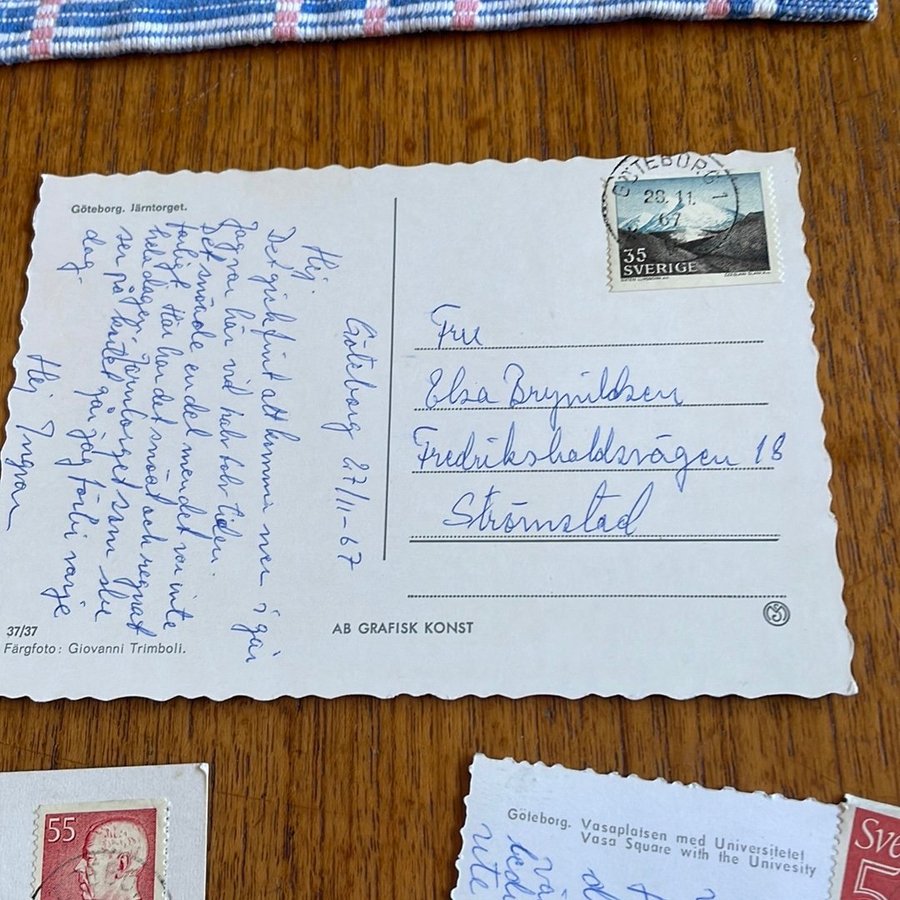 Göteborg. Järntorget.
Göteborg 27/11-67
Hej.
Det gick fint att komma ner i går
Jag var här vid halv tolv tiden.
Det snöade en del men det var inte
farligt. Här har det snöat och regnat
hela dagen. Järntorget som du
ser på kortet går jag förbi varje
dag.
Hej Ingvar
37/37
Färgfoto: Giovanni Trimboli.
AB GRAFISK KONST
GÖTEBORG 1
28.11.
67
35
SVERIGE
Fru
Elsa Brynildsen
Fredrikshaldsvägen 18
Strömstad
55
Göteborg. Vasaplatsen med Universitetet
Vasa Square with the Univesity
Sve
5